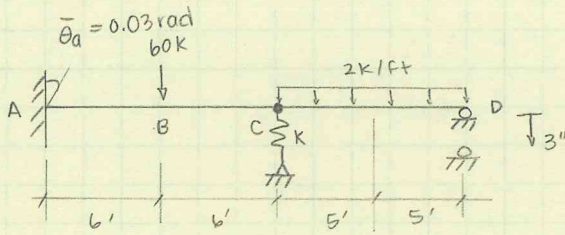 θ̄a = 0.03 rad
60k
2k/ft
A
B
C
K
D
3"
6'
6'
5'
5'